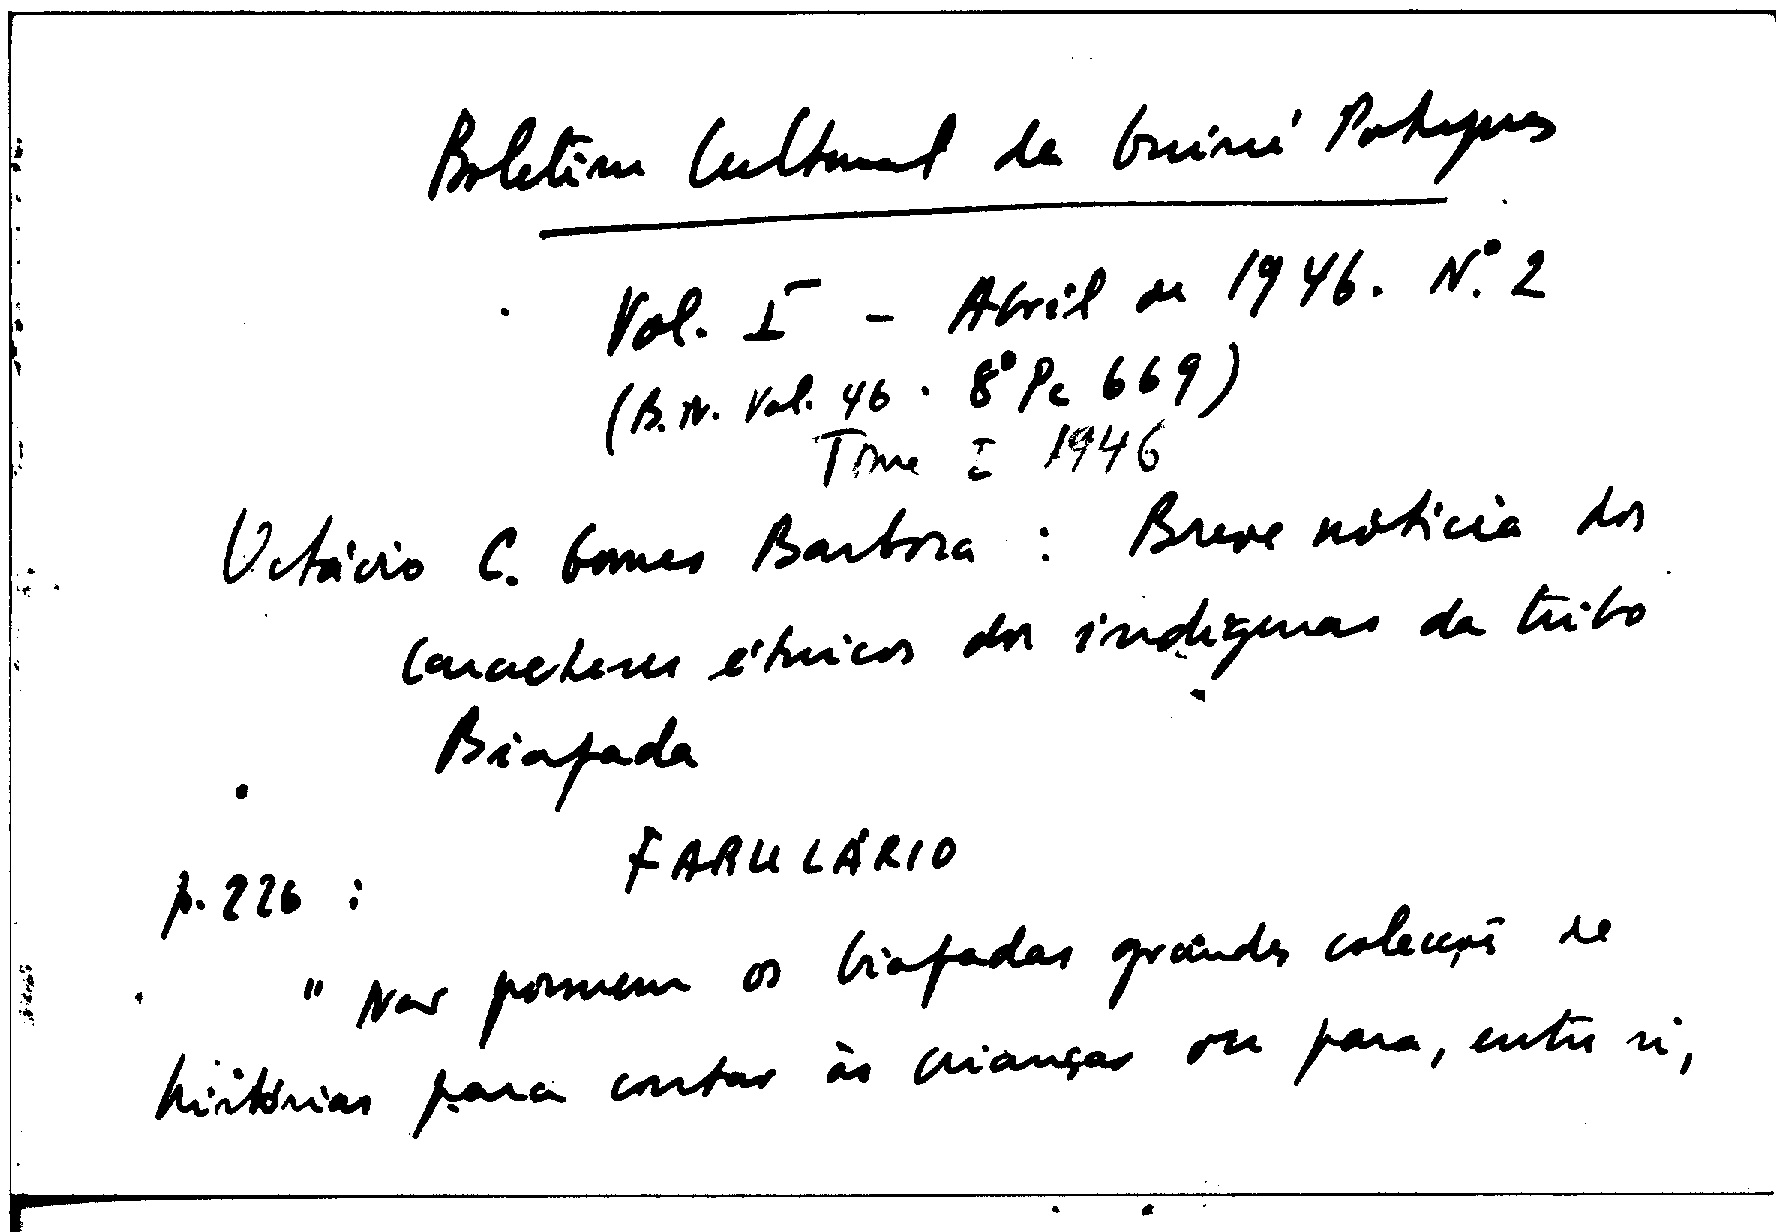 Boletim Cultural da Guiné Portuguesa
Vol. I - Abril de 1946. N.º 2
(B.N. Vol. 46 . 8º Pc 669)
Tome I 1946
Octávio C. Gomes Barbosa : Breve notícia dos
caracteres étnicos dos indígenas da tribo
Biafada
FABULÁRIO
p. 226 :
" Não possuem os biafadas grandes colecção de
histórias para contar às crianças ou para, entre si,